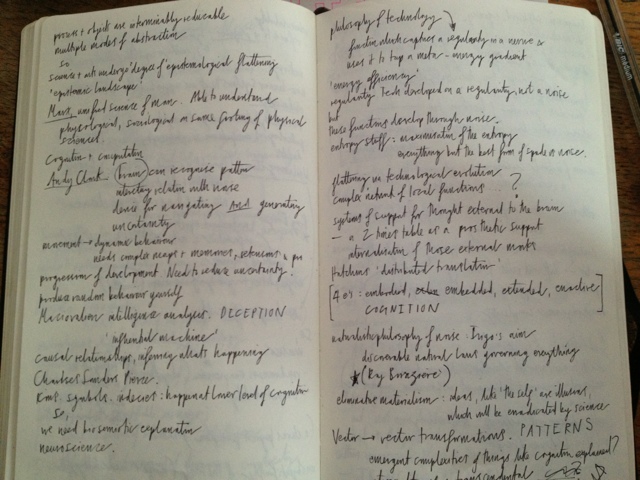 process + object are interminably reducable
multiple modes of abstraction
so
science + arts undergo 'degree of epistemological flattening
'epistemic landscape'
Marx unified science of man. Able to understand
physiological, sociological on same footing of physical
sciences.
Cognition + computation
Andy Clark (brain) can recognise pattern
interplay relation with noise
device for navigating AND generating
uncertainty
movement → dynamic behaviour
needs complex maps + memories, extensions
progression of development. Need to reduce uncertainty.
produce random behaviour yourself
Machiavellian intelligence analysis. DECEPTION
'inferential machine'
causal relationships, inferring what's happening
Charles Sanders Pierce.
symbols. indices: happen at lower level of cognition
So,
we need biosemiotic explanation
neuroscience.
philosophy of technology
function which captures a regularity in a
uses it to tap a meta-energy gradient
'energy efficiency'
regularity Tech developed on a regularity not a noise
but
these functions develop through noise.
entropy stuff: maximisation of the entropy
everything but the best from of spade is noise.
flattening in technological evolution
complex network of local functions .. ?
systems of support for thought external to the brain
– a 2 times table as a prosthetic support
internalisation of those external marks
Hutchins 'distributed translation'
[4 e's: embodied, embedded, extended, enactive
COGNITION]
naturalistic philosophy of noise. Inigo's aim
discoverable natural laws governing everything
(Ray Brassier)
eliminative materialism: ideas, like 'the self' are illusions,
which will be eradicated by science
Vector → vector transformations. PATTERNS
emergent complexities of things like cognition explained?
transcendental